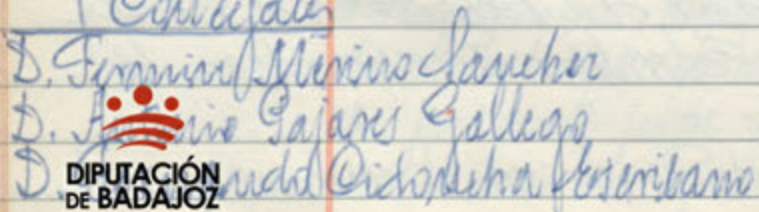 Concejales
D. Fermin Merino Sanchez
D. Antonio Pajares Gallego
D. Escribano
DIPUTACIÓN
DE BADAJOZ